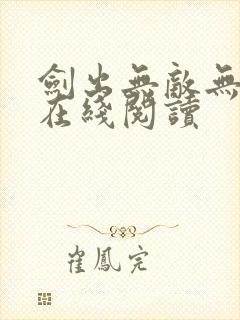 劍出無敵無
在綫閱讀
崔鳳完